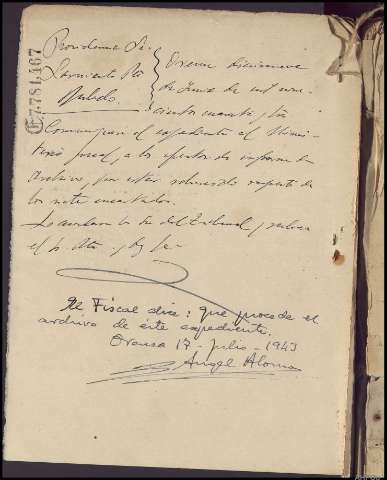 E7.781.167
Providencia Sr.
Sarmiento
Orense diecinueve
de Junio de mil nove-
cientos cuarenta y tres
Comuníquese el expediente al Minis-
terio fiscal, a los efectos de informe de
archivo, por estar sobreseido respecto de
los siete encartados.
Lo acordaron los del Tribunal y rubrica
el
El Fiscal dice: que procede el
archivo de este expediente.
Orense 17 - Julio - 1943
Angel Alonso